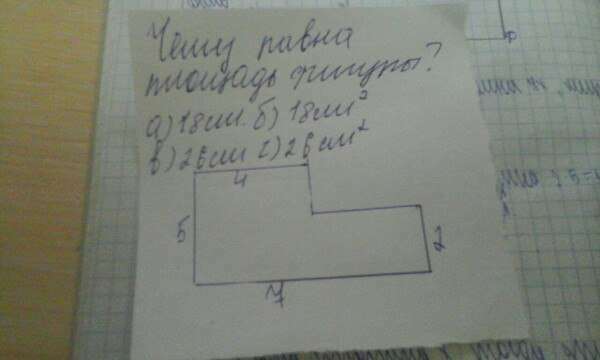 Чему равна
площадь фигуры?
а) 18 см. б) 18 см²
в) 26 см г) 26 см²
4
5
2
7